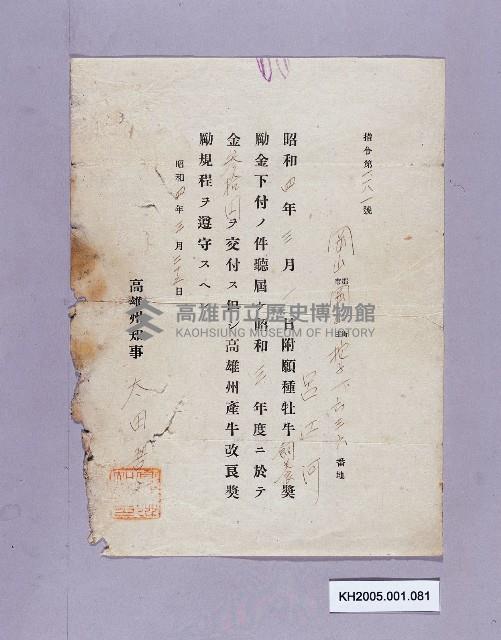 指令第一一八一號
岡山郡
番地
呂江河
昭和四年三月 日附願種牡牛飼養奬
勵金下付ノ件聽屆ケ昭和三年度ニ於テ
金參拾圓ヲ交付ス但シ高雄州產牛改良奬
勵規程ヲ遵守スヘシ
昭和四年三月二十五日
高雄州知事 太田
高雄市立歷史博物館
KAOHSIUNG MUSEUM OF HISTORY
KH2005.001.081